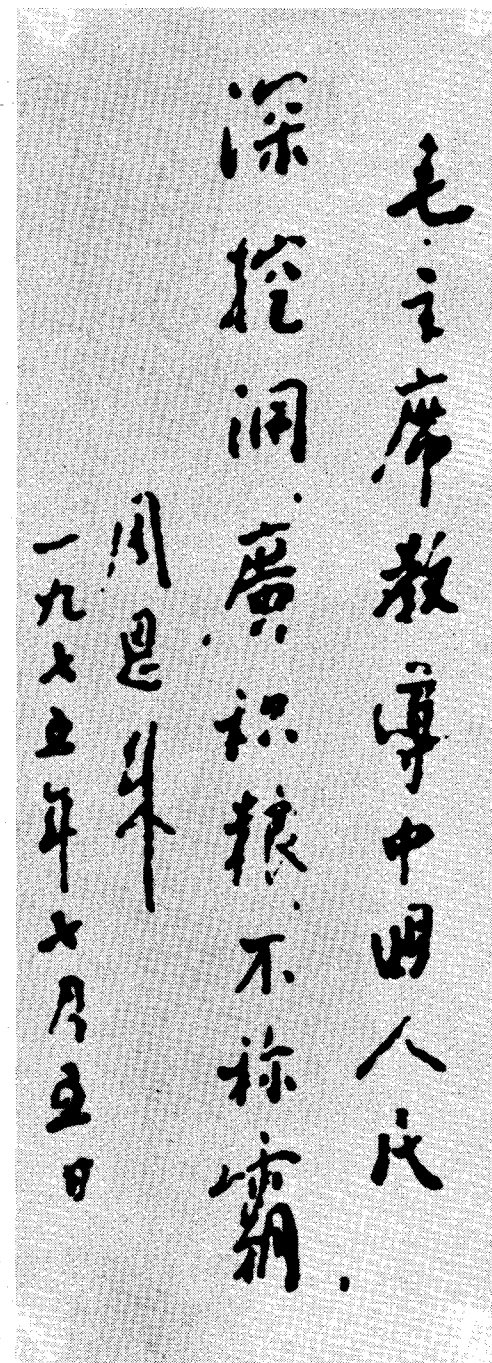 毛主席教導中国人民
深挖洞、廣积粮、不称霸。
周恩来
一九七五年七月五日